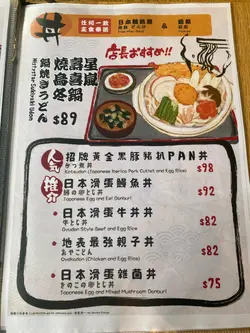 丼
任何一款
定食套餐
日本稻庭
烏冬
鍋燒きうどん
星嵐
壽喜鍋
燒烏冬
$89
店長おすすめ!!
人氣推介
招牌黃金黑豚豬扒PAN丼
かつ煮丼
Katsudon (Japanese Iberico Pork Cutlet and Egg Rice)
$98
日本滑蛋鰻魚丼
鰻の卵とじ丼
Japanese Egg and Eel Donburi
$92
日本滑蛋牛丼
牛とじ丼
Gyudon Style Beef and Egg Rice
$82
地表最強親子丼
おやこどん
Oyakodon (Chicken and Egg Rice)
$82
日本滑蛋雜菌丼
きのこの卵とじ丼
Japanese Egg and Mixed Mushroom Donburi
$75